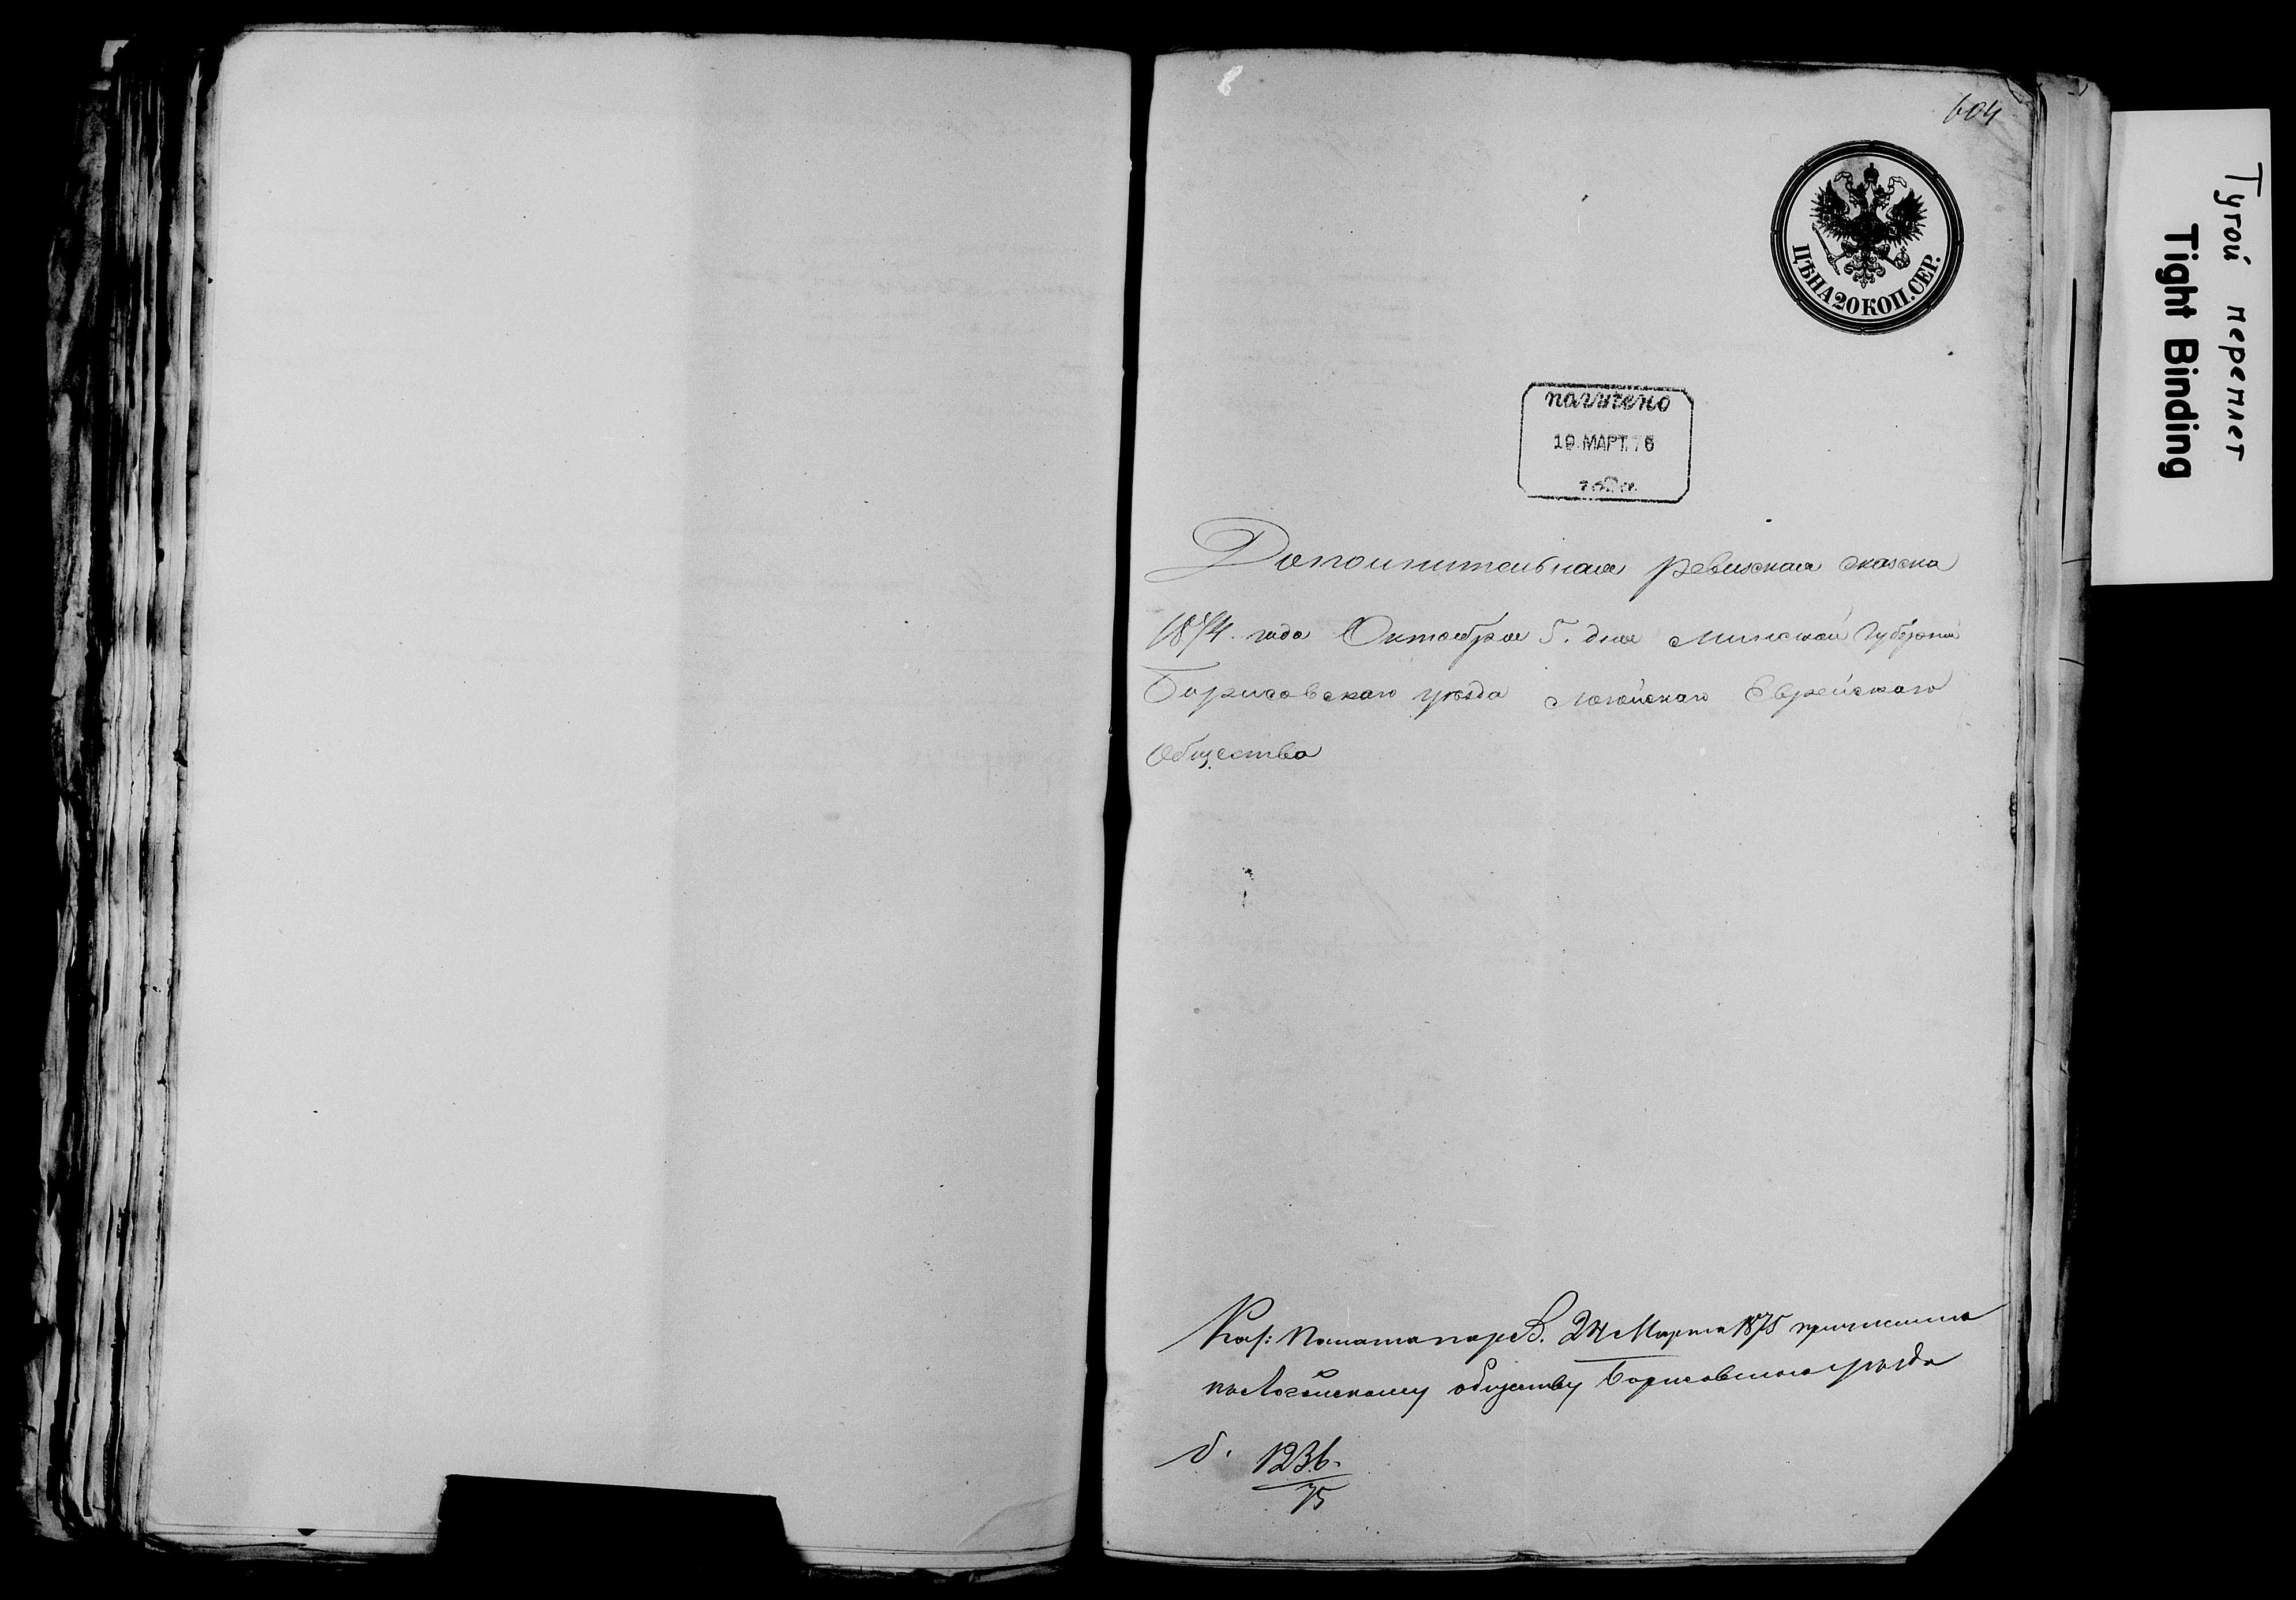 604
ЦѢНА 20 КОП. СЕР.
получено
19 МАРТ. 76
года
Дополнительная ревизская сказка
1874 года Октября 5. дня Минской Губерніи
Борисовскаго уѣзда Логойскаго Еврейскаго
Общества
Каз: Палата 24 Марта 1875 причислила
къ Логойскому обществу Борисовскаго уѣзда
1236.
75
Тугой переплет
Tight Binding